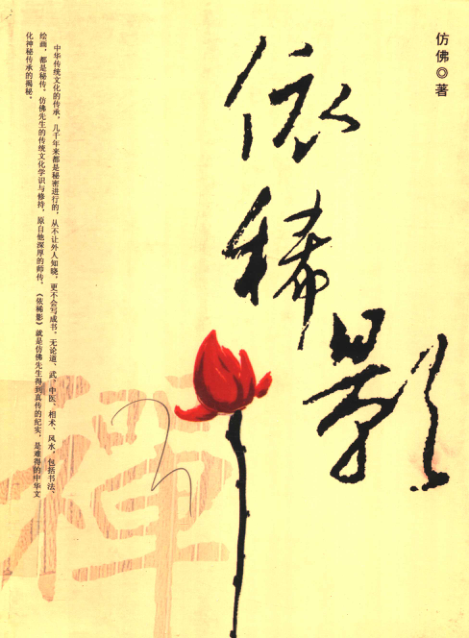 仿佛◎著
依稀影
中华传统文化的传承，几千年来都是秘密进行的，从不让外人知晓，更不会写成书，无论道、武、中医、相术、风水，包括书法、
绘画，都是秘传。仿佛先生的传统文化学识与修持，原自他深厚的师传，《依稀影》就是仿佛先生得到真传的纪实，是难得的中华文
化神秘传承的揭秘。
禅